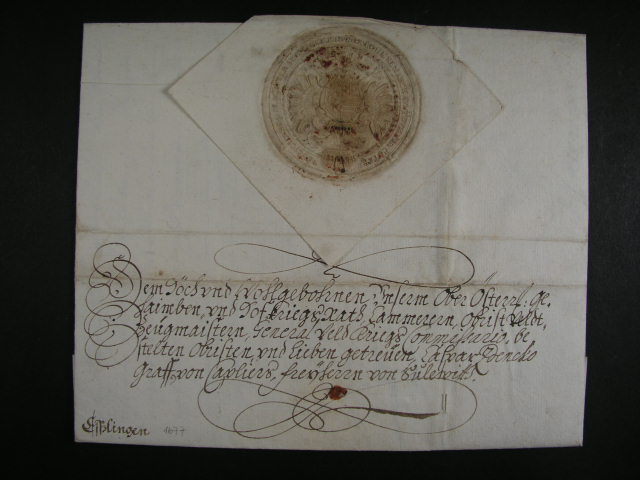 Dem Hoch und Wohlgebohrnen, Unserm Ober Österrl: ge-
haimben, und Hof Kriegs Rath, Cammerern, Obrist Veldt-
Zeugmaistern, General Veld Kriegs Commissario, be-
stelten Obristen, und Lieben getreuen, Caspar Zdencko
Graffen von Capliers, Freyherrn von Sulewitz.
Esslingen
1677